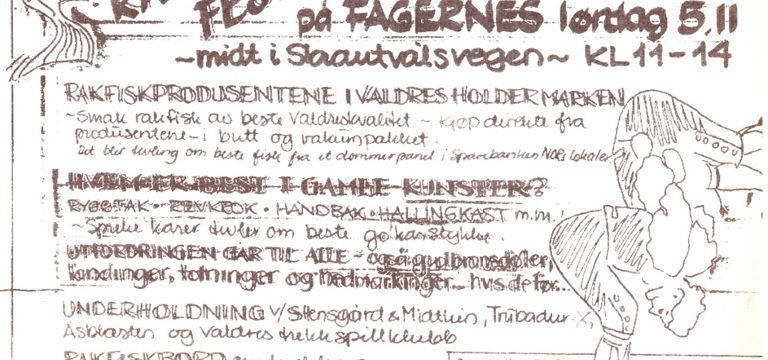 på FAGERNES lørdag 5.11
~midt i Skrautvålsvegen~ KL 11-14
RAKFISKPRODUSENTENE I VALDRES HOLDER MARKEN
~Smak rakfisk av beste Valdreskvalitet ~ Kjøp direkte fra
produsentene - i butt og vakumpakket.
Det blir kåring om beste fisk fra et dommerpanel i Sparebanken NORs lokaler
HVEM ER BEST I GAMLE KUNSTER?
RYGGTAK • REVKROK • HANDBAK • HALLINGKAST m.m.!
~Spreke karer om beste stykke.
UTFORDRINGEN GÅR TIL ALLE - også gudbrandsdøler,
landinger, totninger og hedmarkinger... hvis de tør...
UNDERHOLDNING v/Stensgård & Midthus, Trubadur-X,
Asbjørsten og Valdres trekkspillklubb
RAKFISKBORD